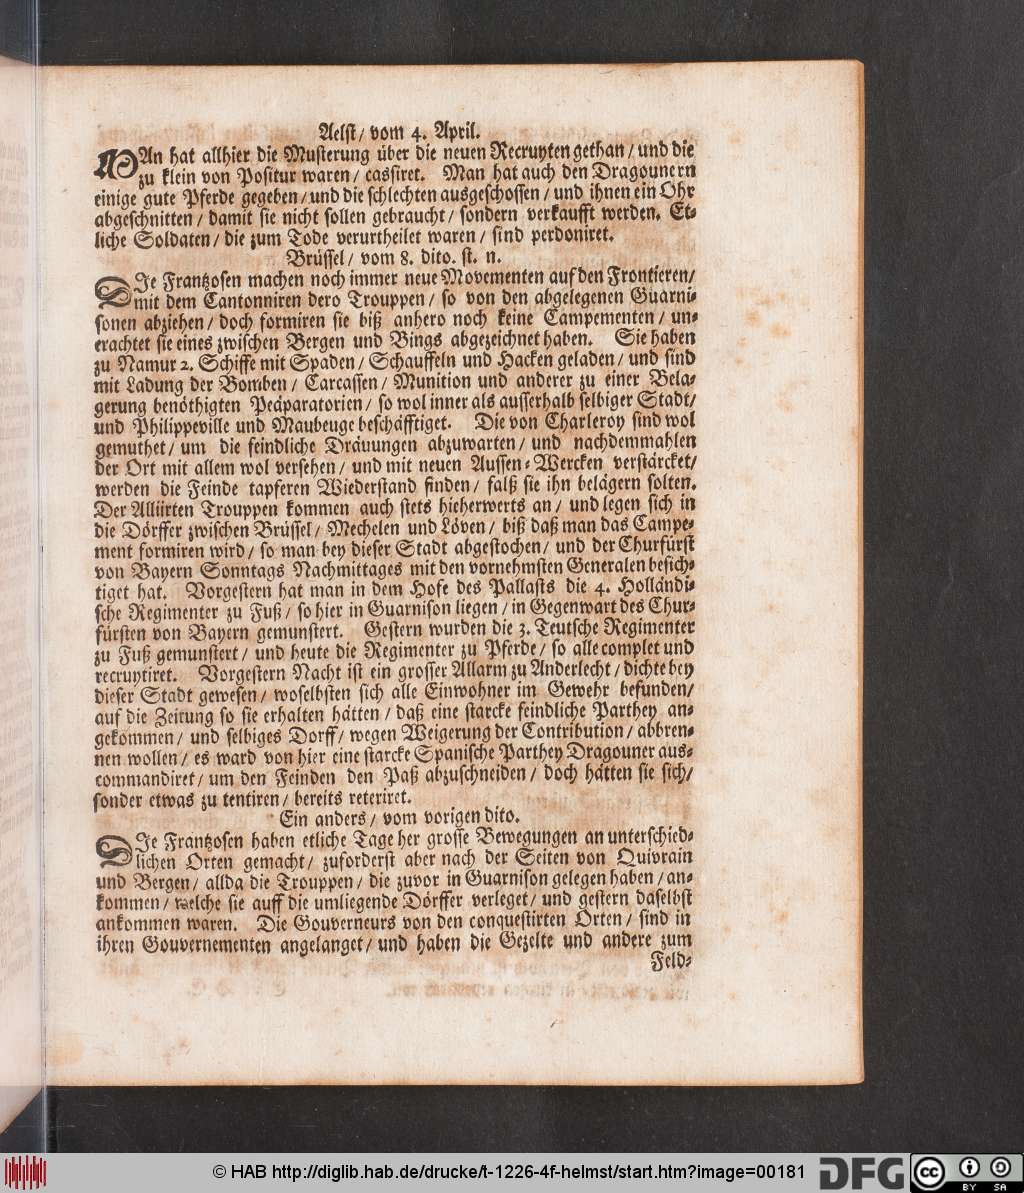 Aelst/ vom 4. April.
MAn hat allhier die Musterung über die neuen Recruyten gethan/ und die
zu klein von Positur waren/ cassiret. Man hat auch den Dragounern
einige gute Pferde gegeben/ und die schlechten ausgeschossen/ und ihnen ein Ohr
abgeschnitten/ damit sie nicht sollen gebraucht/ sondern verkaufft werden. Et-
liche Soldaten/ die zum Tode verurtheilet waren/ sind perdoniret.
Brüssel/ vom 8. dito. st. n.
DIe Frantzosen machen noch immer neue Movementen auf den Frontieren/
mit dem Cantonniren dero Trouppen/ so von den abgelegenen Guarni-
sonen abziehen/ doch formiren sie biß anhero noch keine Campementen/ un-
erachtet sie eines zwischen Bergen und Bings abgezeichnet haben. Sie haben
zu Namur 2. Schiffe mit Spaden/ Schauffeln und Hacken geladen/ und sind
mit Ladung der Bomben/ Carcassen/ Munition und anderer zu einer Bela-
gerung benöthigten Peäparatorien/ so wol inner als ausserhalb selbiger Stadt/
und Philippeville und Maubeuge beschäfftiget. Die von Charleroy sind wol
gemuthet/ um die feindliche Dräuungen abzuwarten/ und nachdemmahlen
der Ort mit allem wol versehen/ und mit neuen Aussen-Wercken verstärcket/
werden die Feinde tapferen Wiederstand finden/ falß sie ihn belägern solten.
Der Alliirten Trouppen kommen auch stets hieherwerts an/ und legen sich in
die Dörffer zwischen Brüssel/ Mechelen und Löven/ biß daß man das Campe-
ment formiren wird/ so man bey dieser Stadt abgestochen/ und der Churfürst
von Bayern Sonntags Nachmittages mit den vornehmsten Generalen besich-
tiget hat. Vorgestern hat man in dem Hofe des Pallasts die 4. Holländi-
sche Regimenter zu Fuß/ so hier in Guarnison liegen/ in Gegenwart des Chur-
fürsten von Bayern gemunstert. Gestern wurden die 3. Teutsche Regimenter
zu Fuß gemunstert/ und heute die Regimenter zu Pferde/ so alle complet und
recruytiret. Vorgestern Nacht ist ein grosser Allarm zu Anderlecht/ dichte bey
dieser Stadt gewesen/ woselbsten sich alle Einwohner im Gewehr befunden/
auf die Zeitung so sie erhalten hätten/ daß eine starcke feindliche Parthey an-
gekommen/ und selbiges Dorff/ wegen Weigerung der Contribution/ abbren-
nen wollen/ es ward von hier eine starcke Spanische Parthey Dragouner aus-
commandiret/ um den Feinden den Paß abzuschneiden/ doch hätten sie sich/
sonder etwas zu tentiren/ bereits reteriret.
Ein anders/ vom vorigen dito.
DIe Frantzosen haben etliche Tage her grosse Bewegungen an unterschied-
lichen Orten gemacht/ zuforderst aber nach der Seiten von Quivrain
und Bergen/ allda die Trouppen/ die zuvor in Guarnison gelegen haben/ an-
kommen/ welche sie auff die umliegende Dörffer verleget/ und gestern daselbst
ankommen waren. Die Gouverneurs von den conquestirten Orten/ sind in
ihren Gouvernementen angelanget/ und haben die Gezelte und andere zum
Feld-
© HAB http://diglib.hab.de/drucke/t-1226-4f-helmst/start.htm?image=00181
DFG
cc
BY SA